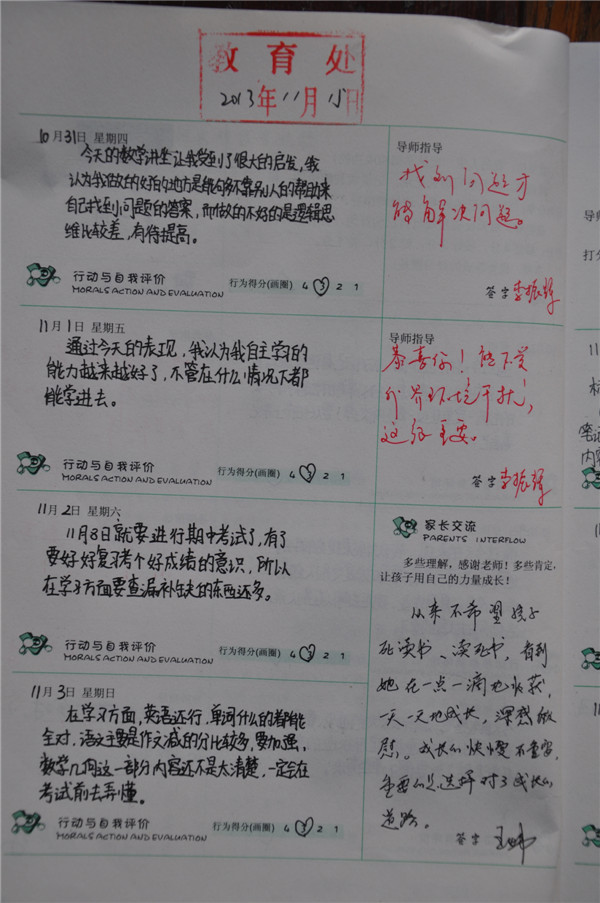 教育处
2013年11月15日
10月31日 星期四
今天的数学讲坐让我受到了很大的启发,我
认为我做的好的地方是能够不靠别人的帮助来
自己找到问题的答案,而做的不好的是逻辑思
维比较差,有待提高。
行动与自我评价
MORALS ACTION AND EVALUATION
行为得分(画圈) 4 3 2 1
导师指导
找到问题才
能解决问题。
签字 李振辉
11月1日 星期五
通过今天的表现,我认为我自主学习的
能力越来越好了,不管在什么情况下都
能学进去。
行动与自我评价
MORALS ACTION AND EVALUATION
行为得分(画圈) 4 3 2 1
导师指导
恭喜你!能不受
外界环境干扰,
这很重要。
签字 李振辉
11月2日 星期六
11月8日就要进行期中考试了,有了
要好好复习考个好成绩的意识,所以
在学习方面要查漏补缺的东西还多。
行动与自我评价
MORALS ACTION AND EVALUATION
行为得分(画圈) 4 3 2 1
11月3日 星期日
在学习方面,英语还行,单词什么的都能
全对,语文主要是作文减的分比较多,要加强,
数学几何这一部分内容还不是太清楚,一定会在
考试前去弄懂。
行动与自我评价
MORALS ACTION AND EVALUATION
行为得分(画圈) 4 3 2 1
家长交流
PARENTS INTERFLOW
多些理解,感谢老师!多些肯定,
让孩子用自己的力量成长!
从来不希望孩子
死读书、读死书,看到
她在一点一滴地收获,
一天一天地成长,深感欣
慰。成长的快慢不重要,
重要的是选择对了成长的
道路。
签字
导师
打分
11
笔记
内容